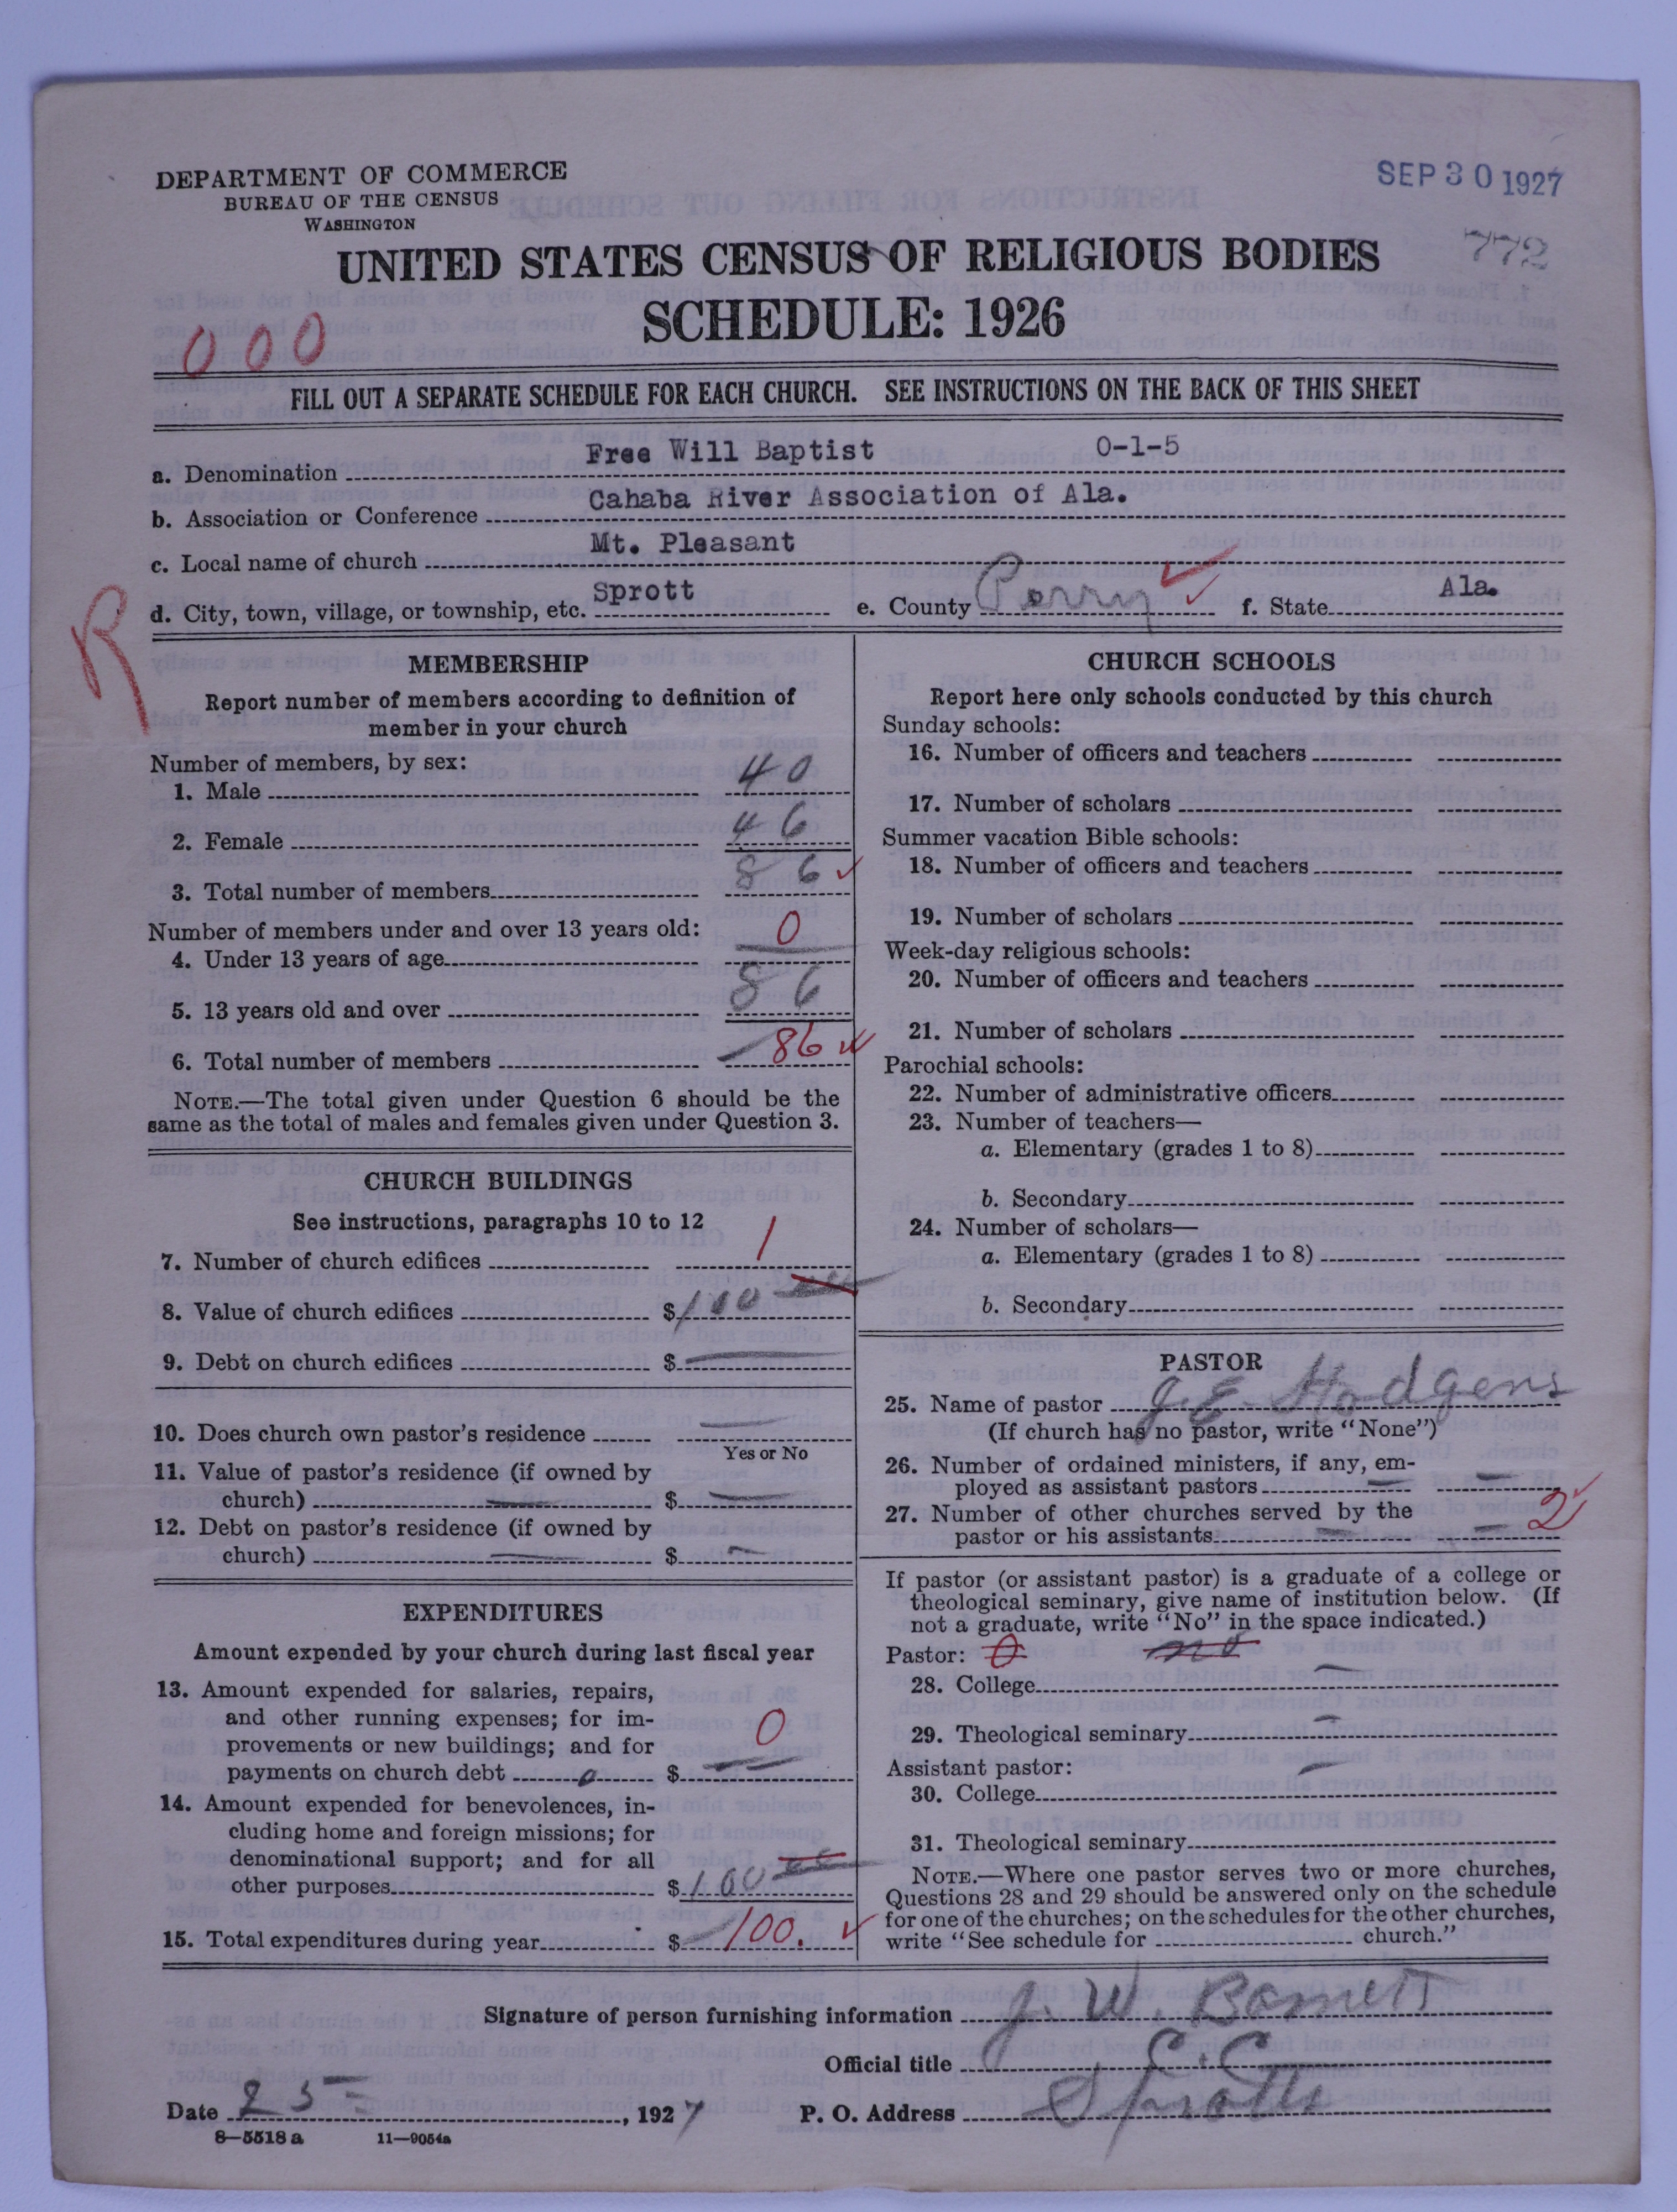 DEPARTMENT OF COMMERCE
BUREAU OF THE CENSUS
WASHINGTON
SEP 30 1927
772
UNITED STATES CENSUS OF RELIGIOUS BODIES
SCHEDULE: 1926
000
FILL OUT A SEPARATE SCHEDULE FOR EACH CHURCH. SEE INSTRUCTIONS ON THE BACK OF THIS SHEET
a. Denomination Free Will Baptist 0-1-5
b. Association or Conference Cahaba River Association of Ala.
c. Local name of church Mt. Pleasant
d. City, town, village, or township, etc. Sprott e. County Perry f. State Ala.
R
MEMBERSHIP
Report number of members according to definition of
member in your church
Number of members, by sex:
1. Male 40
2. Female 46
3. Total number of members 86
Number of members under and over 13 years old:
4. Under 13 years of age 0
5. 13 years old and over 86
6. Total number of members 86
NOTE.—The total given under Question 6 should be the
same as the total of males and females given under Question 3.
CHURCH BUILDINGS
See instructions, paragraphs 10 to 12
7. Number of church edifices 1
8. Value of church edifices $100
9. Debt on church edifices $
10. Does church own pastor's residence
Yes or No
11. Value of pastor's residence (if owned by
church) $
12. Debt on pastor's residence (if owned by
church) $
EXPENDITURES
Amount expended by your church during last fiscal year
13. Amount expended for salaries, repairs,
and other running expenses; for im-
provements or new buildings; and for
payments on church debt 0 $ 0
14. Amount expended for benevolences, in-
cluding home and foreign missions; for
denominational support; and for all
other purposes $100
15. Total expenditures during year $100.
CHURCH SCHOOLS
Report here only schools conducted by this church
Sunday schools:
16. Number of officers and teachers
17. Number of scholars
Summer vacation Bible schools:
18. Number of officers and teachers
19. Number of scholars
Week-day religious schools:
20. Number of officers and teachers
21. Number of scholars
Parochial schools:
22. Number of administrative officers
23. Number of teachers—
a. Elementary (grades 1 to 8)
b. Secondary
24. Number of scholars—
a. Elementary (grades 1 to 8)
b. Secondary
PASTOR
25. Name of pastor J. E. Hodgens
(If church has no pastor, write "None")
26. Number of ordained ministers, if any, em-
ployed as assistant pastors
27. Number of other churches served by the
pastor or his assistants 2
If pastor (or assistant pastor) is a graduate of a college or
theological seminary, give name of institution below. (If
not a graduate, write "No" in the space indicated.)
Pastor: 0 no
28. College
29. Theological seminary
Assistant pastor:
30. College
31. Theological seminary
NOTE.—Where one pastor serves two or more churches,
Questions 28 and 29 should be answered only on the schedule
for one of the churches; on the schedules for the other churches,
write "See schedule for church."
Signature of person furnishing information J. W. Barnett
Official title C. C.
Date 25, 1927 P. O. Address Sprott
8—5518a 11—9054a